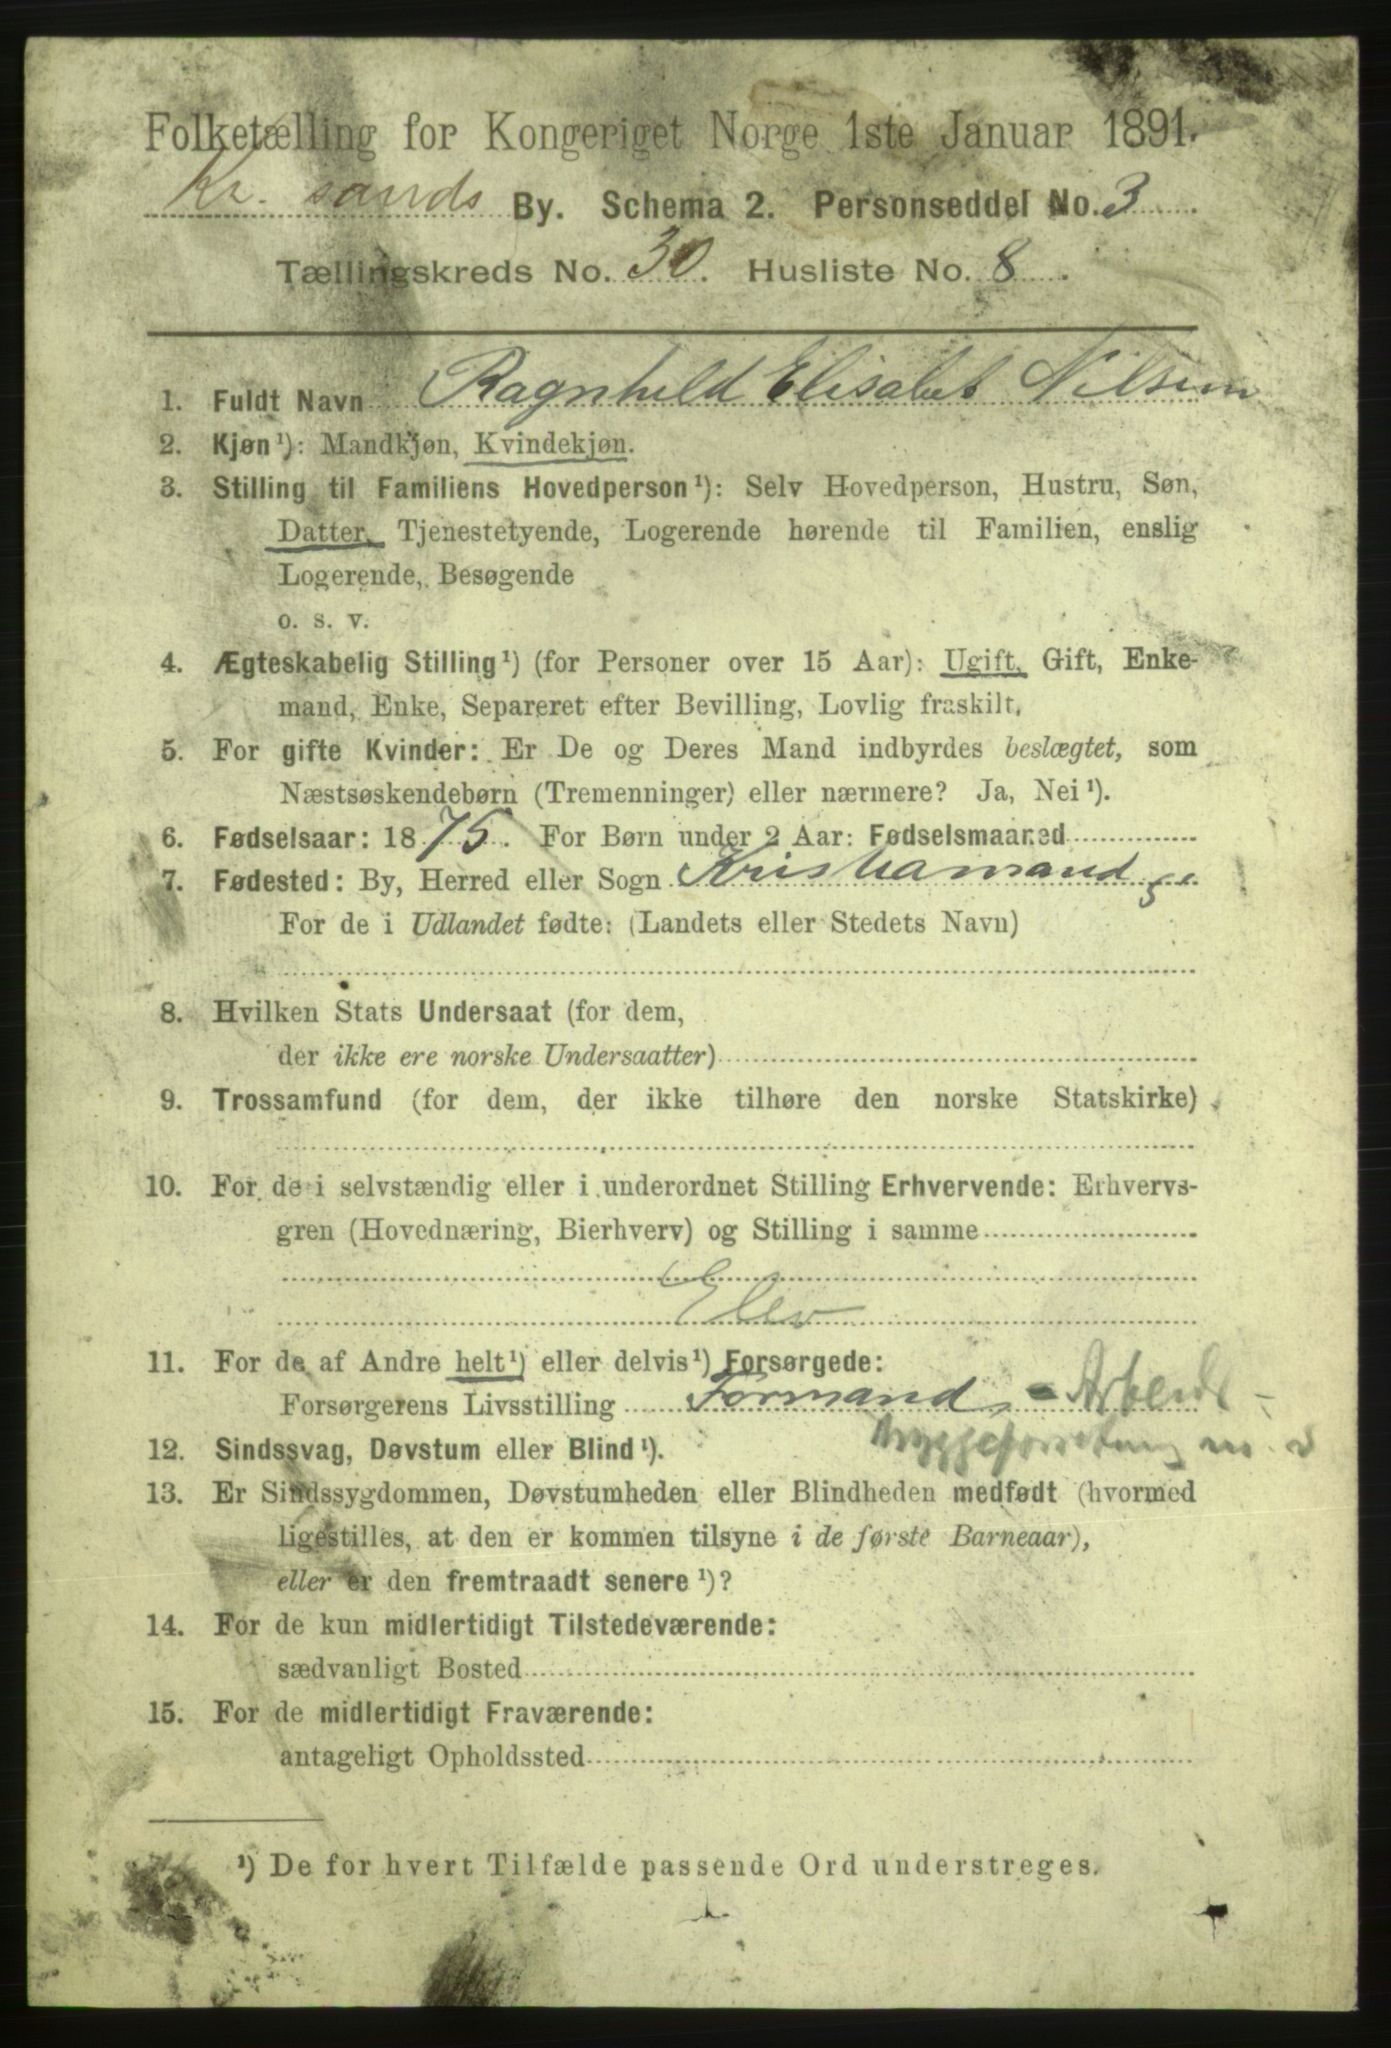 Folketælling for Kongeriget Norge 1ste Januar 1891.
Kr. sands By. Schema 2. Personseddel No. 3
Tællingskreds No. 30. Husliste No. 8.
1. Fuldt Navn Ragnhild Elisabet Nilsen
2. Kjøn¹): Mandkjøn, Kvindekjøn.
3. Stilling til Familiens Hovedperson¹): Selv Hovedperson, Hustru, Søn,
Datter, Tjenestetyende, Logerende hørende til Familien, enslig
Logerende, Besøgende
o. s. v.
4. Ægteskabelig Stilling¹) (for Personer over 15 Aar): Ugift, Gift, Enke-
mand, Enke, Separeret efter Bevilling, Lovlig fraskilt.
5. For gifte Kvinder: Er De og Deres Mand indbyrdes beslægtet, som
Næstsøskendebørn (Tremenninger) eller nærmere? Ja, Nei¹).
6. Fødselsaar: 1875. For Børn under 2 Aar: Fødselsmaaned
7. Fødested: By, Herred eller Sogn Kristiansand
For de i Udlandet fødte: (Landets eller Stedets Navn)
8. Hvilken Stats Undersaat (for dem,
der ikke ere norske Undersaatter)
9. Trossamfund (for dem, der ikke tilhøre den norske Statskirke)
10. For de i selvstændig eller i underordnet Stilling Erhvervende: Erhvervs-
gren (Hovednæring, Bierhverv) og Stilling i samme
Elev
11. For de af Andre helt¹) eller delvis¹) Forsørgede:
Forsørgerens Livsstilling Formand - Arbeids-
12. Sindssvag, Døvstum eller Blind¹).
13. Er Sindssygdommen, Døvstumheden eller Blindheden medfødt (hvormed
ligestilles, at den er kommen tilsyne i de første Barneaar),
eller er den fremtraadt senere¹)?
14. For de kun midlertidigt Tilstedeværende:
sædvanligt Bosted
15. For de midlertidigt Fraværende:
antageligt Opholdssted
¹) De for hvert Tilfælde passende Ord understreges.